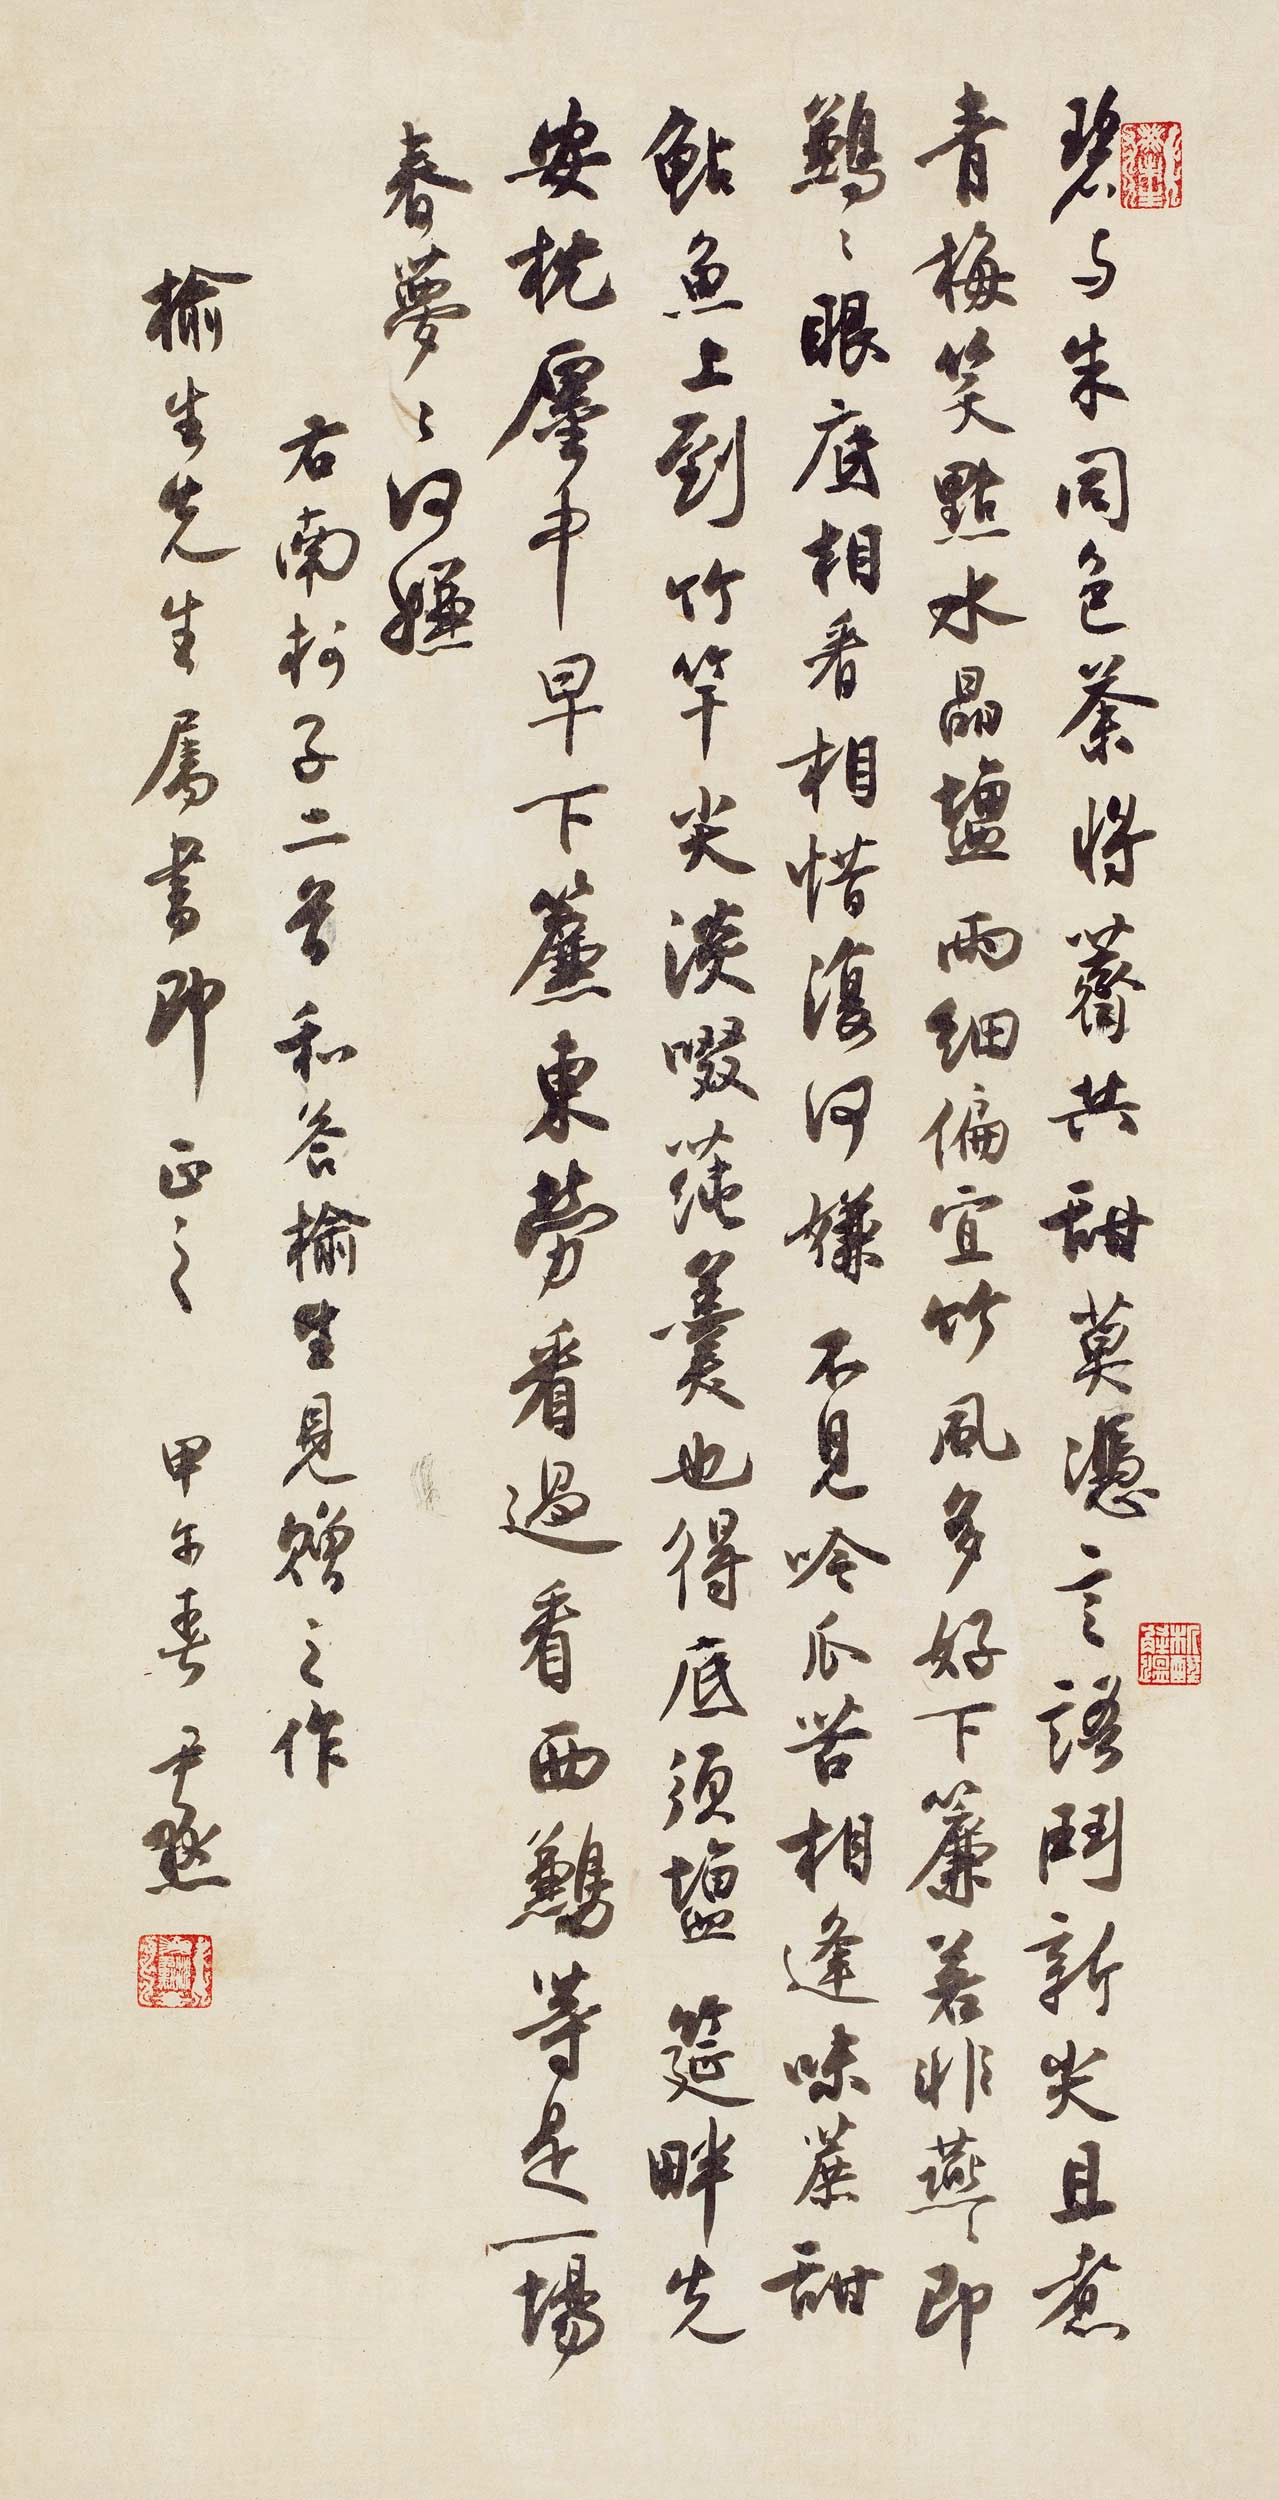 碧与朱同色荼將薺共甜莫憑言語鬥新尖且煮
青梅笑點水晶鹽雨細偏宜竹風多好下簾若非燕〻即
鶼〻眼底相看相惜復何嫌不見吟瓜苦相逢味蔗甜
鮎魚上到竹竿尖淡啜蓴羹也得底須鹽筵畔先
安枕屋中早下簾東勞看過看西鶼等是一場
春夢〻何嫌
右南柯子二首和答榆生見贈之作
榆生先生屬書即正之 甲午春 尹默